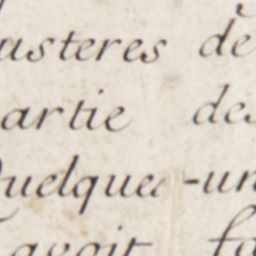 asteres de
artie des
Quelques-un
avoit fa